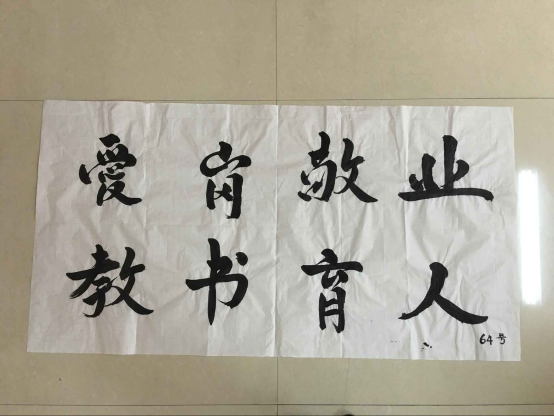 愛岗敬业
教书育人
64号